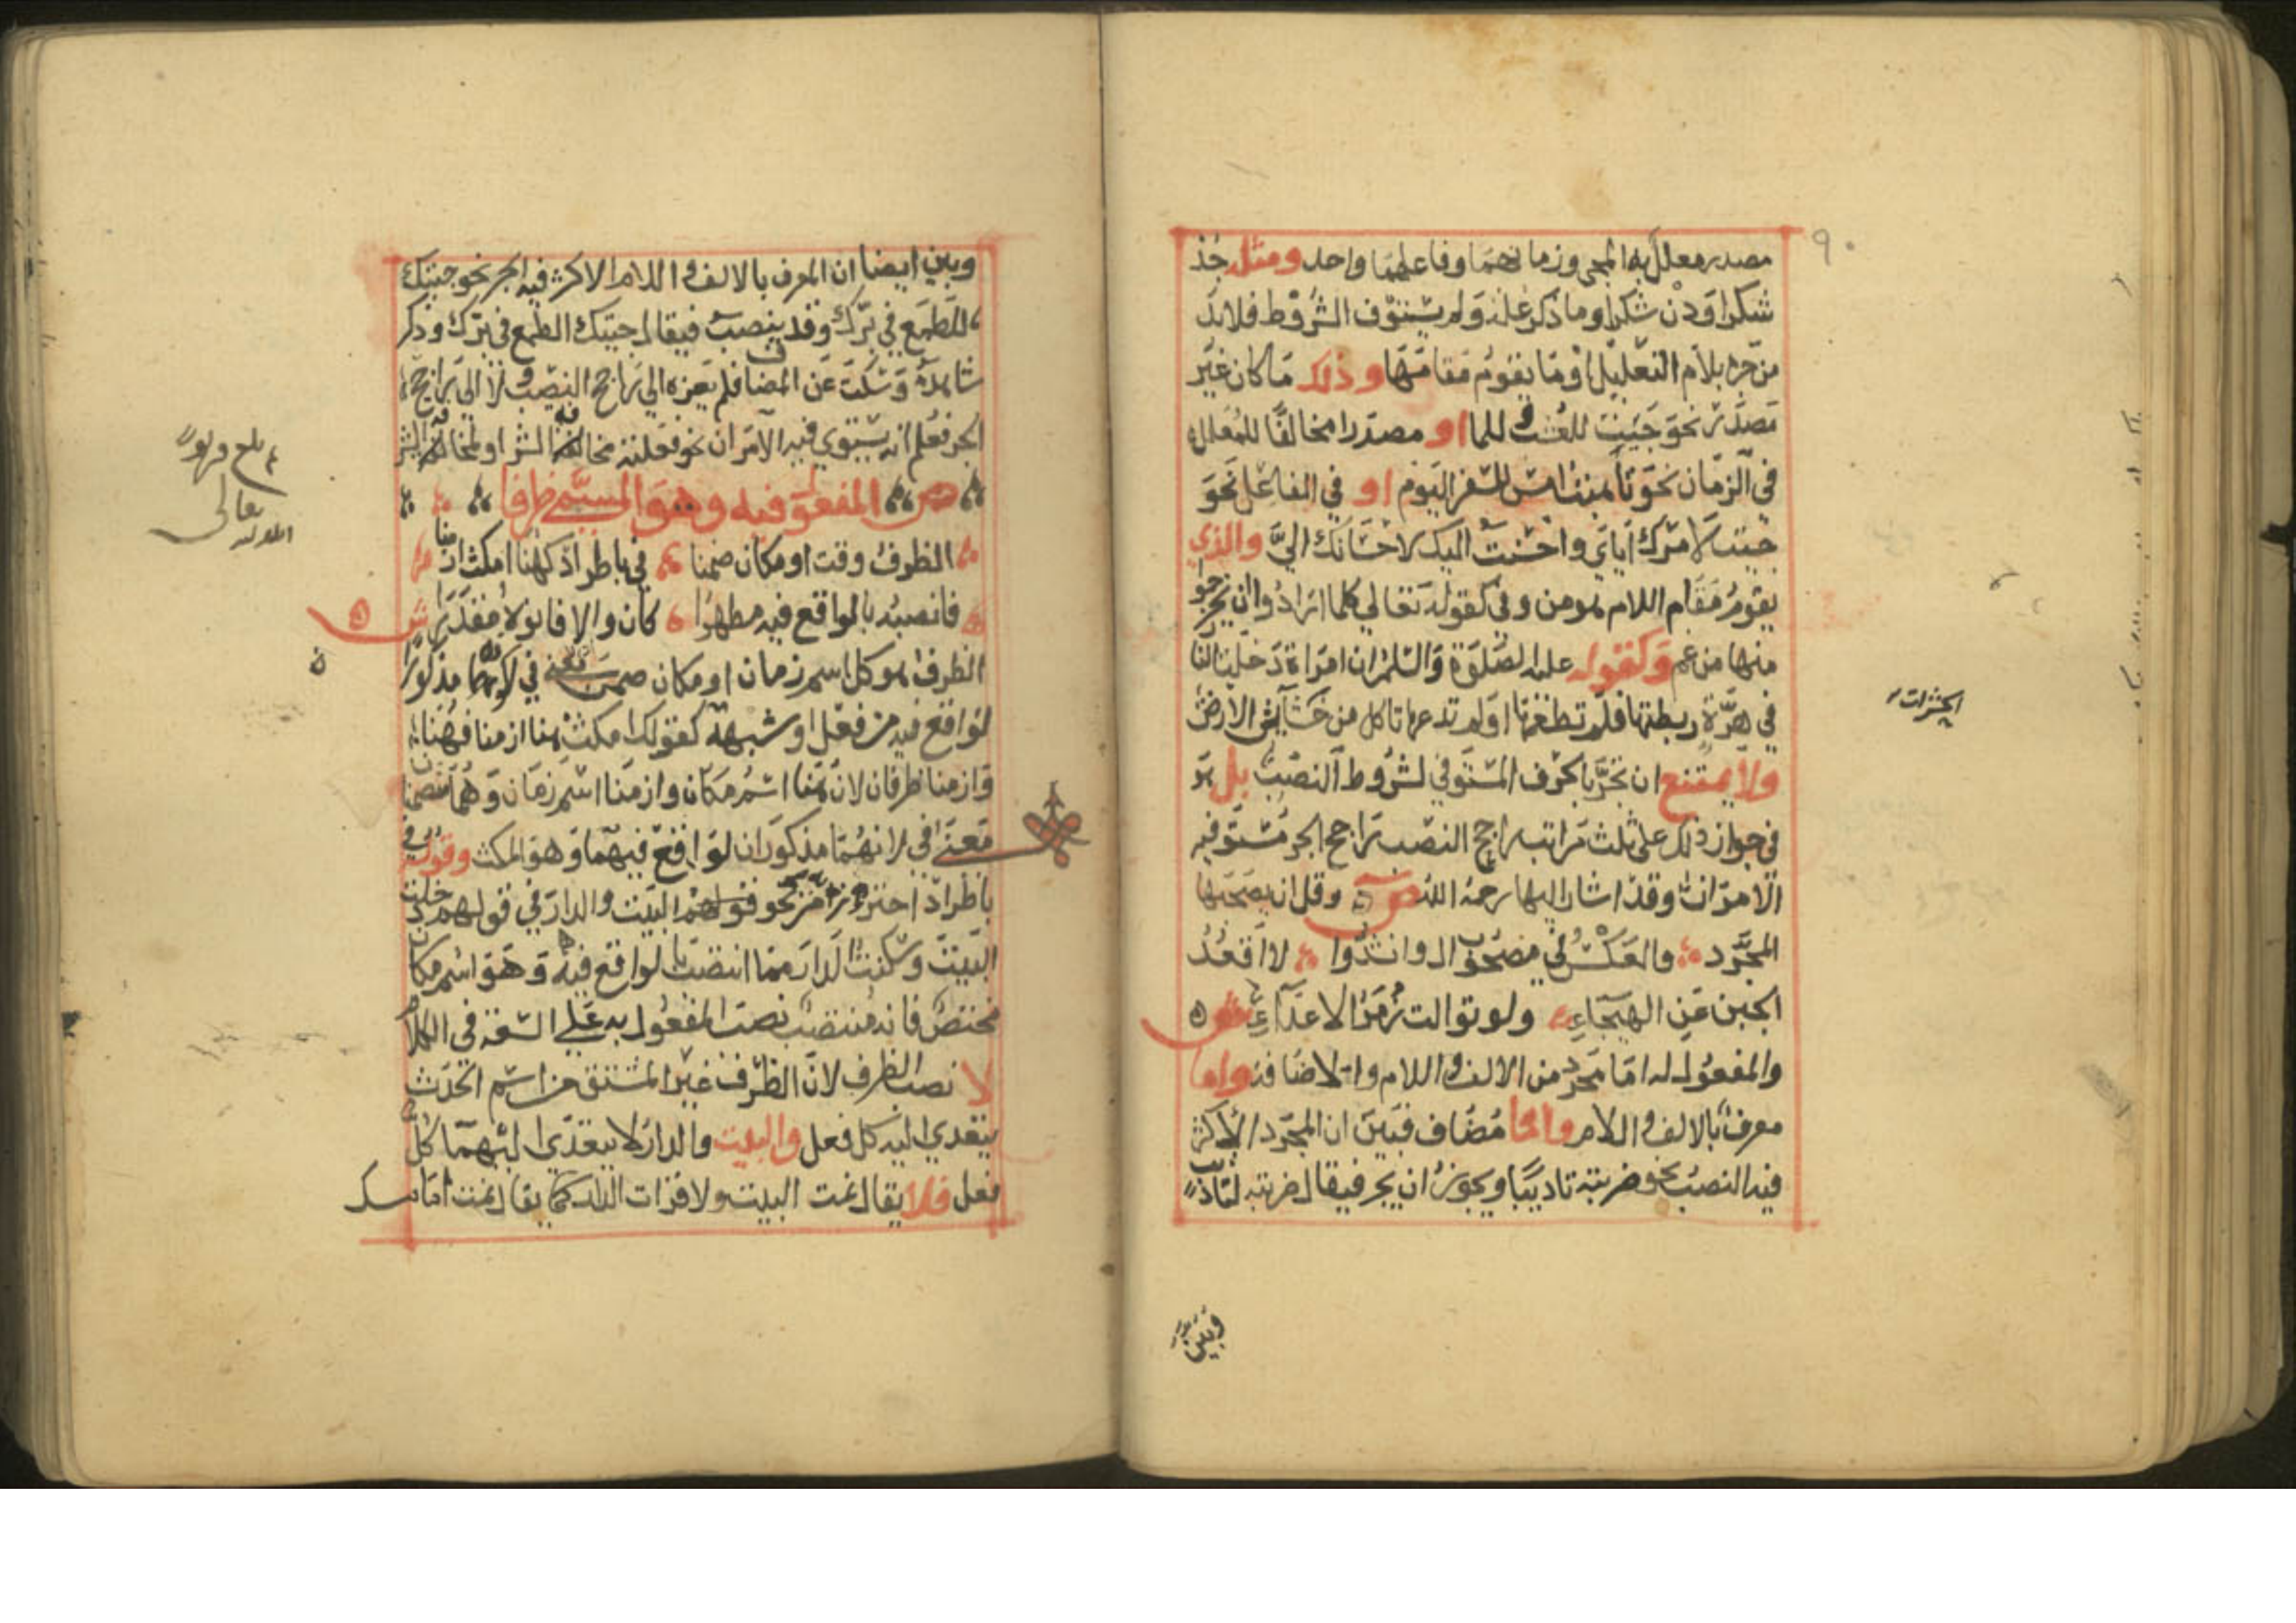 ٩٠
مصدر معلل به المجي وزمانهما وفاعلهما واحد ومثله جد
شكرا ودن شكرا وما ذكر علة ولم يستوف الشروط فلا بد
من جره بلام التعليل او ما يقوم مقامها وذلك ما كان غير
مصدر نحو جيت للعشب وللما او مصدرا مخالفا للمعلل
في الزمان نحو تاهبت امس للسفر اليوم او في الفاعل نحو
جيت لامرك اياي واحسنت اليك لاحسانك الي والذي
يقوم مقام اللام هو من وفي كقوله تعالي كلما ارادوا ان يخرجوا
منها من غم وكقوله عليه الصلوة والسلم ان امراة دخلت النا
في هرة ربطتها فلم تطعمها ولم تدعها تاكل من خشاش الارض
ولا يمتنع ان تجر بالحرف المستوفي لشروط النصب بل هو
في جواز ذلك على ثلث مراتب راجح النصب راجح الجر مستو فيه
الامران وقد اشار اليها رحمه الله ص وقل ان يصحبها
المجرد والعكس في مصحوب ال وانشدوا لا اقعد
الجبن عن الهيجاء ولو توالت زمر الاعداء ش
والمفعول له اما مجرد من الالف واللام والاضافة واما
معرف بالالف والام واما مضاف فبين ان المجرد الاكثر
فيه النصب نحو ضربته تاديبا ويجوز ان يجر فيقال ضربته لتاديب
وبين
الحشرات
وبين ايضا ان المعرف بالالف واللام الاكثر فيه الجر نحو جيتك
للطمع في برك وقد ينصب فيقال جيتك الطمع في برك وذكر
شاهده وسكت عن المضاف فلم يعزه الي راجح النصب ولا الي راجح
الجر فعلم انه يستوي فيه الامران نحو فعلته مخافة الشر او لمخافة الشر
ص المفعول فيه وهو المسمي ظرفا
الظرف وقت او مكان ضمنا في باطراد كهنا امكث ازمنا
فانصبه بالواقع فيه مظهرا كان والا فانوه مقدرا ش
الظرف هو كل اسم زمان او مكان ضمن معني في لكونه مذكورا
لواقع فيه من فعل او شبهه كقولك امكث هنا ازمنا فهنا
وازمنا ظرفان لان هنا اسم مكان وازمنا اسم زمان وهما متضمنان
معني في لانهما مذكوران لواقع فيهما وهو المكث وقوله في
باطراد احترز من نحو قولهم البيت والدار في قولهم دخلت
البيت وسكنت الدار مما انتصب بالواقع فيه وهو اسم مكان
مختص فانه منتصب نصب المفعول به علي السعة في الكلام
لا نصب الظرف لان الظرف غير المشتق من اسم الحدث
يتعدي اليه كل فعل والبيت والدار لا يتعدي اليهما كل
فعل فلا يقال نمت البيت ولا قرات الدار كما يقال نمت امامك
بلغ
تعالى